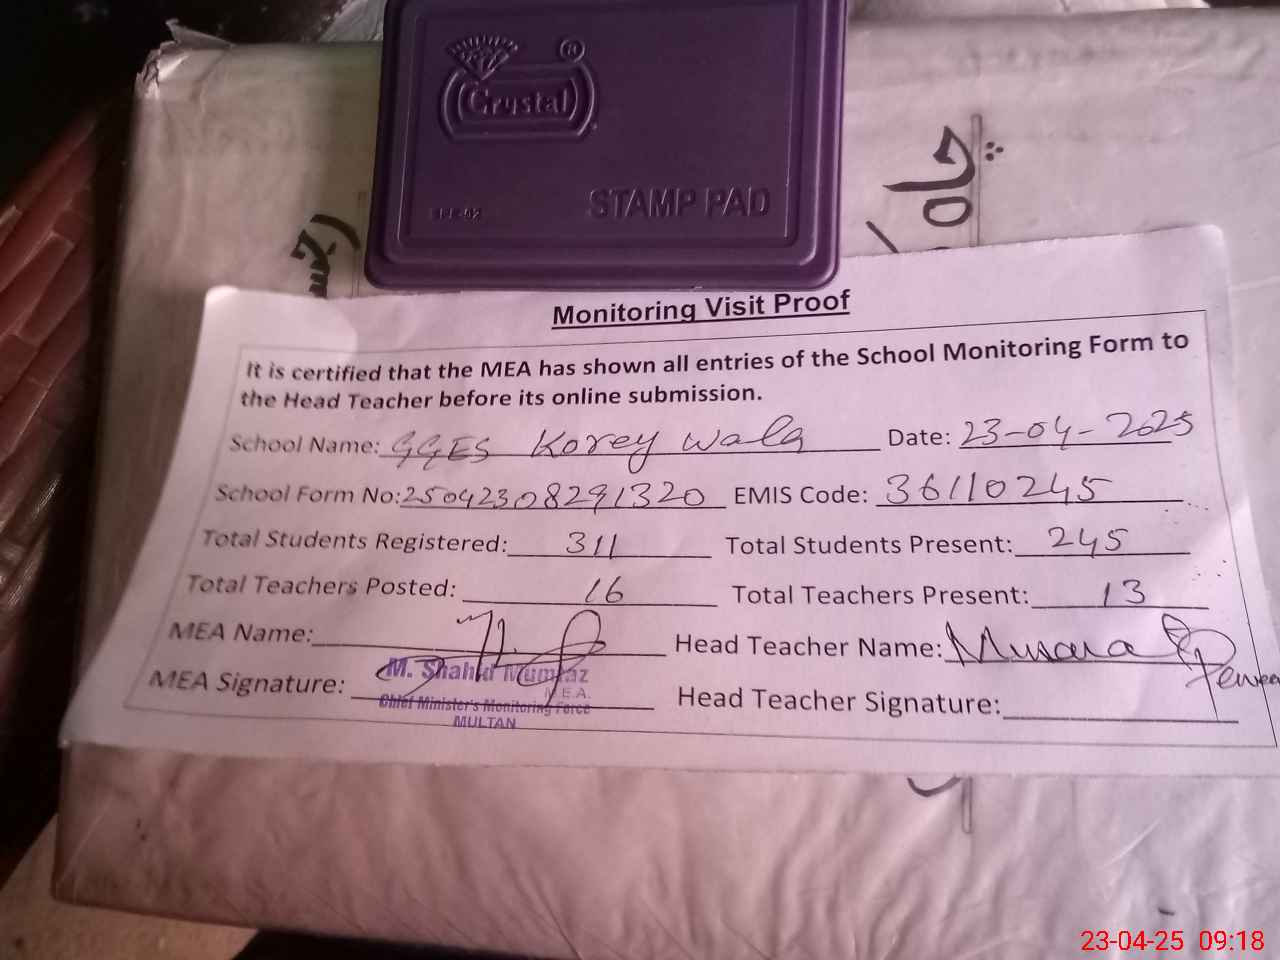 Crystal ®
STAMP PAD
Monitoring Visit Proof
It is certified that the MEA has shown all entries of the School Monitoring Form to
the Head Teacher before its online submission.
School Name: GGES Korey Wala Date: 23-04-2025
School Form No: 25042308291320 EMIS Code: 36110245
Total Students Registered: 311 Total Students Present: 245
Total Teachers Posted: 16 Total Teachers Present: 13
MEA Name: Head Teacher Name:
M. Shahid Mumtaz
M.E.A.
MEA Signature: Head Teacher Signature:
Chief Minister's Monitoring Force
MULTAN
23-04-25 09:18